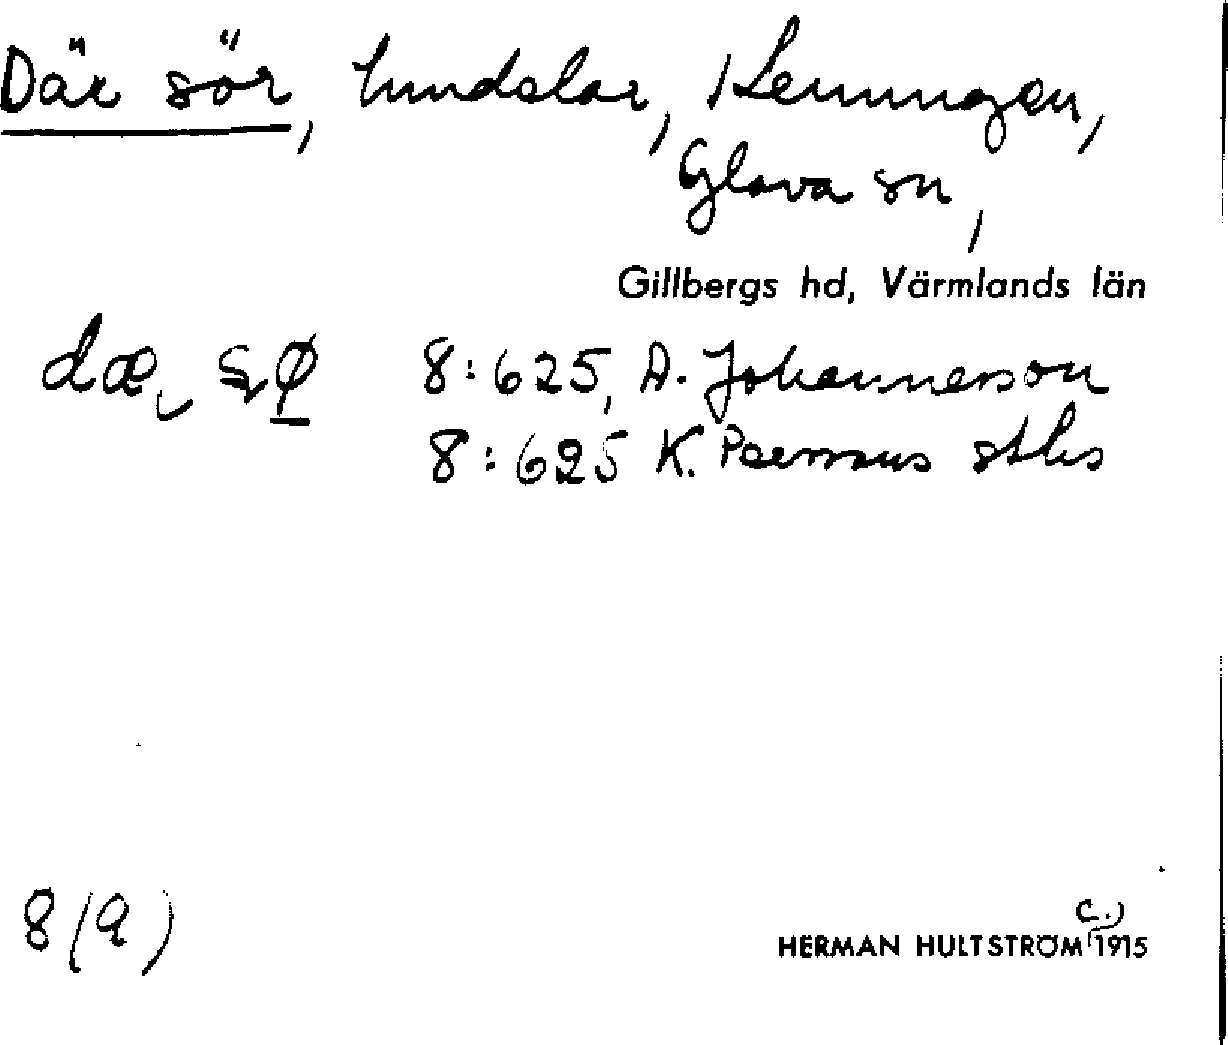 Där sör, hmdelar, Henningen,
Glava sn,
Gillbergs hd, Värmlands län
dæ, sø 8:625, A. Johannesson
8:625 K. Persson sthes
8 (a)
c.)
HERMAN HULTSTRÖM 1915